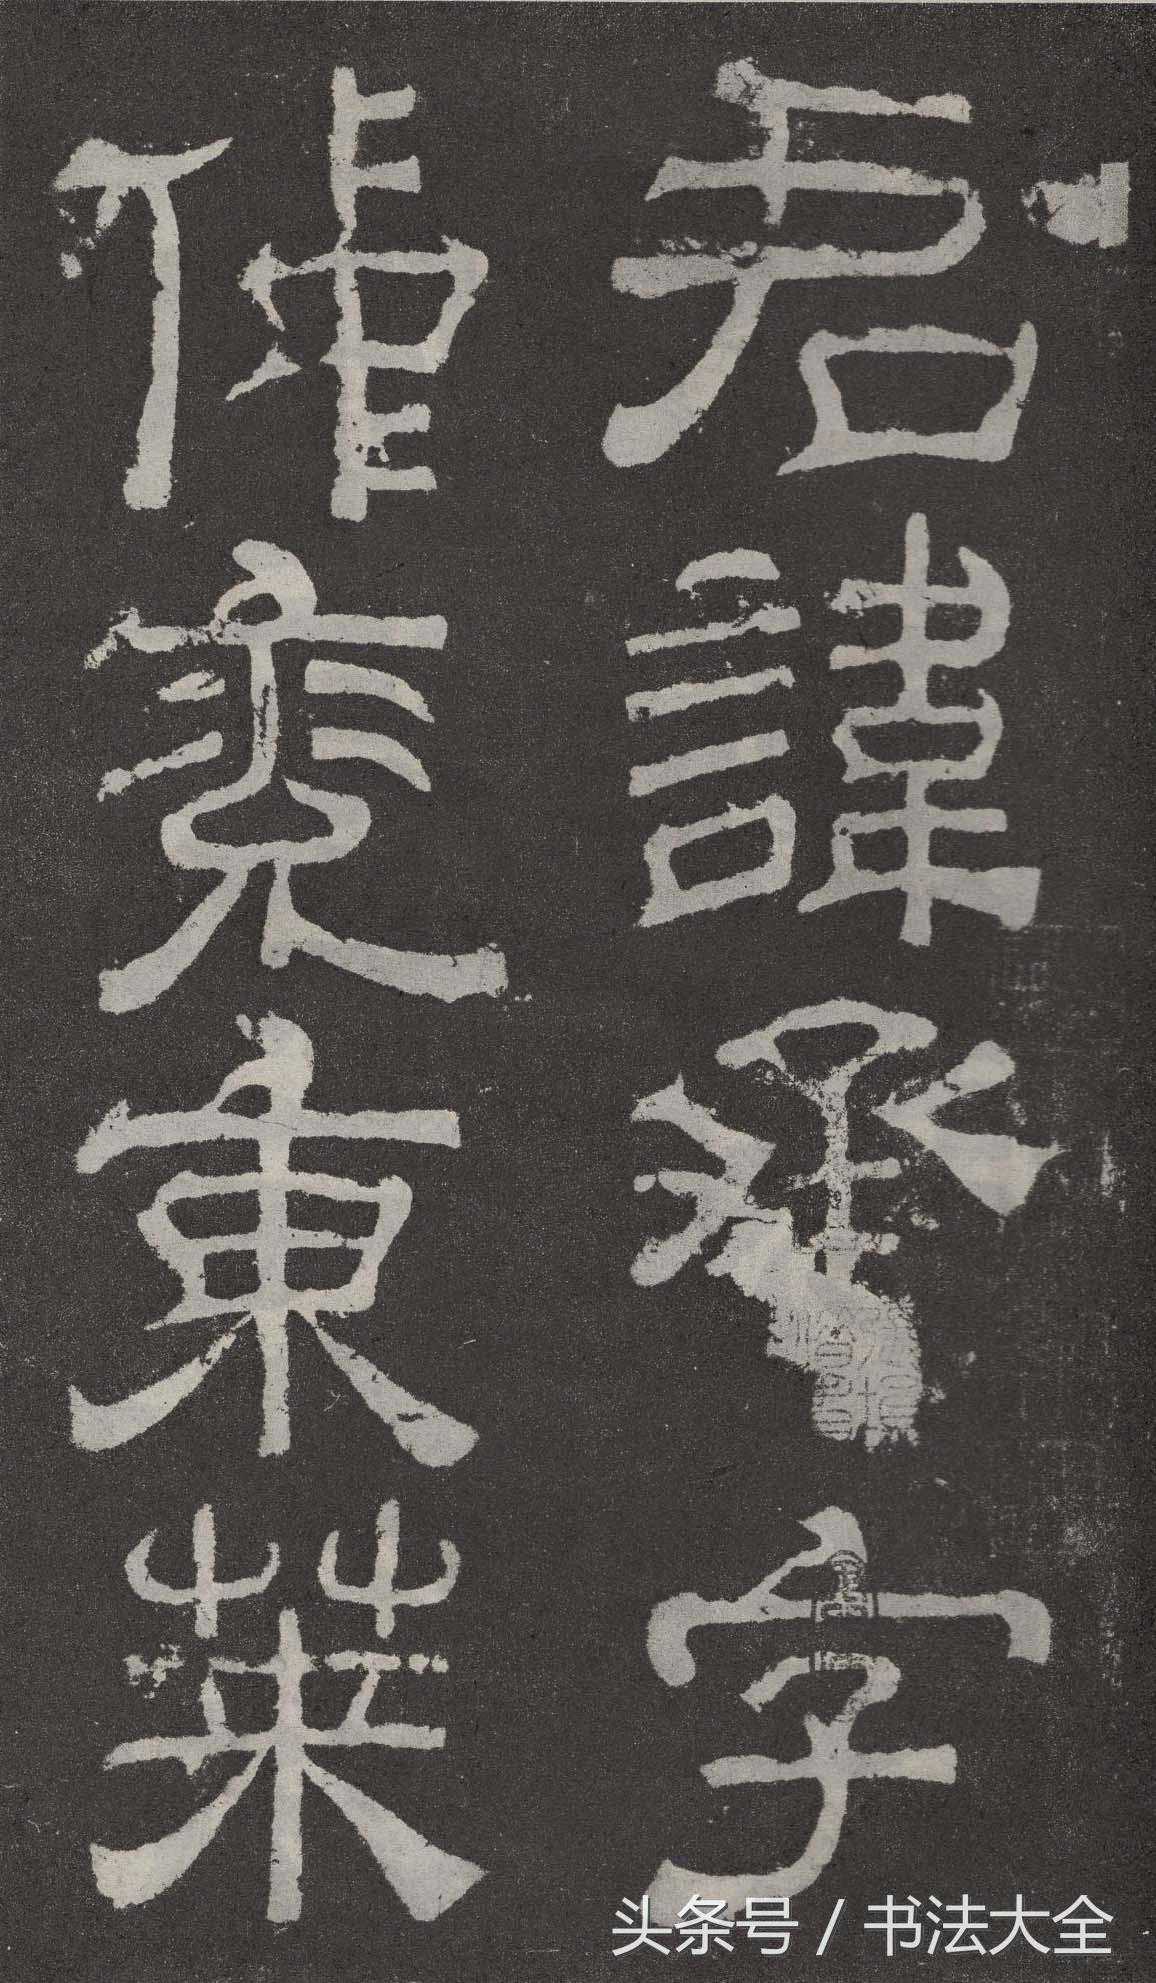 君諱承字
仲兗東萊
头条号 / 书法大全